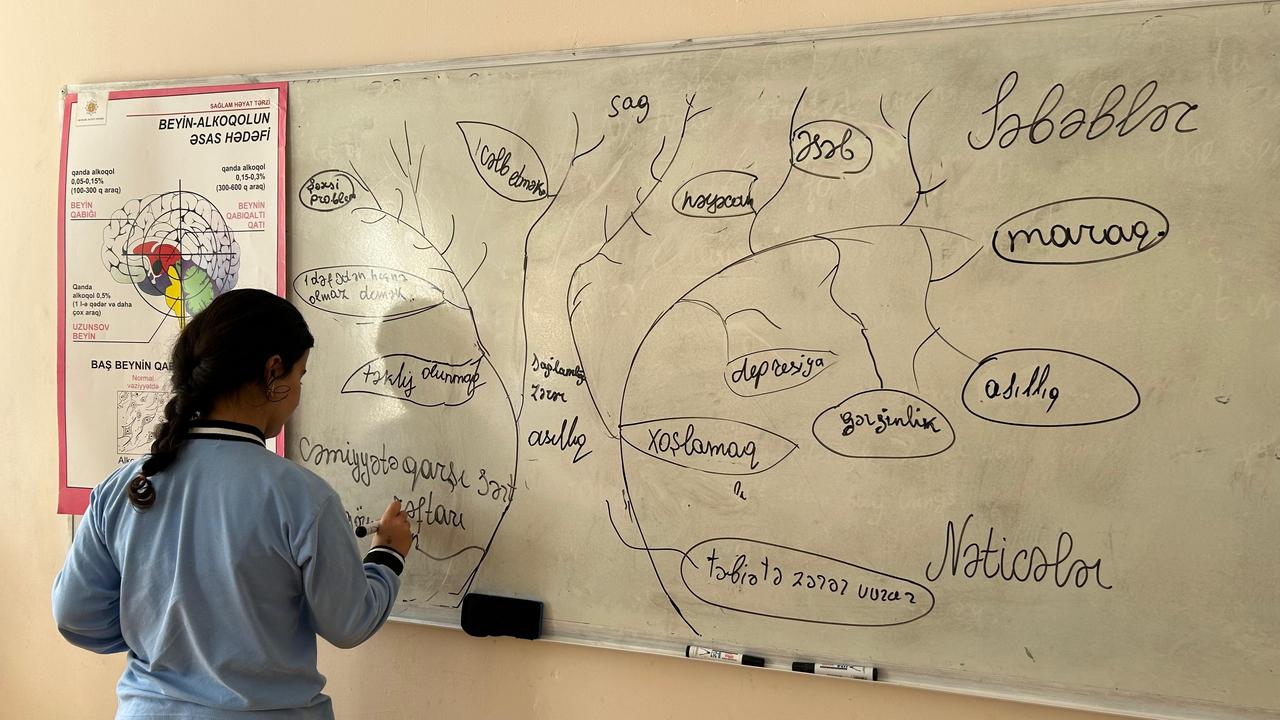 SAĞLAM HƏYAT TƏRZİ
BEYİN-ALKOQOLUN
ƏSAS HƏDƏFİ
qanda alkoqol
0,05-0,15%
(100-300 q araq)
qanda alkoqol
0,15-0,3%
(300-600 q araq)
BEYİN
QABIĞI
BEYNİN
QABIQALTI
QATI
Qanda
alkoqol 0,5%
(1 l-ə qədər və daha
çox araq)
UZUNSOV
BEYİN
BAŞ BEYNİN
Normal
vəziyyətdə
sag
Səbəblər
şəxsi
problem
cəlb etmək
həyəcan
əsəb
maraq.
1 dəfədən heçnə
olmaz demək.
təklif olunmaq
Sağlamlığa
zərər
asıllıq
depresiya
gərginlik
asıllıq
xoşlamaq
Cəmiyyətə qarşı
təbiətə zərər vurar
Nəticələr